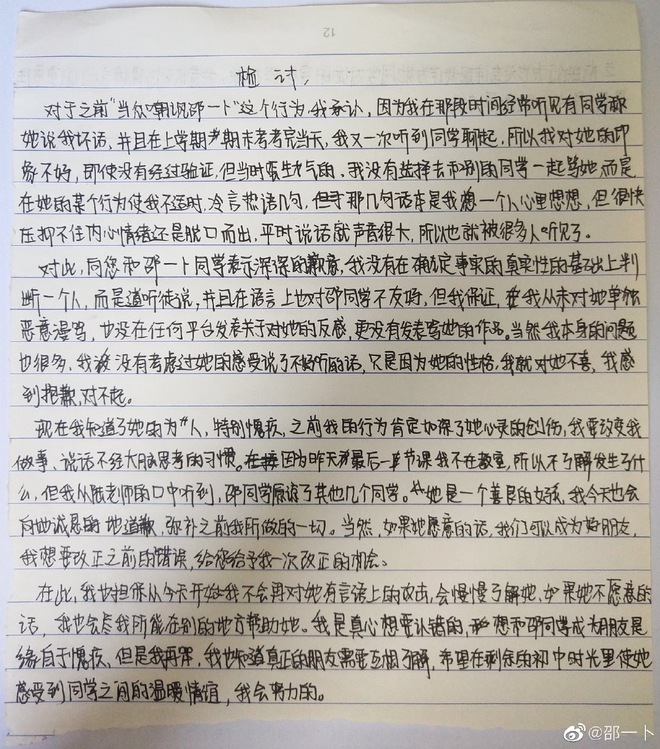 12
检讨
对于之前“当众嘲讽邵一卜”这个行为,我承认,因为我在那段时间经常听见有同学和
她说我坏话,并且在上学期期末考考完当天,我又一次听到同学聊起,所以我对她的印
象不好,即使没有经过验证,但当时蛮生气的,我没有选择去和别的同学一起骂她,而是
在她的某个行为使我不适时,冷言热语几句,但那几句话本是我想一个人心里想想,但很快
压抑不住内心情绪还是脱口而出,平时说话就声音很大,所以也就被很多人听见了。
对此,向您和邵一卜同学表示深深的歉意,我没有在确定事实的真实性的基础上判
断一个人,而是道听徒说,并且在语言上也对邵同学不友好,但我保证,我从未对她单独
恶意漫骂,也没在任何平台发表关于对她的反感,更没有发表害她的作品。当然我本身的问题
也很多,我没有考虑过她的感受说了不好听的话,只是因为她的性格,我就对她不喜,我感
到抱歉,对不起。
现在我知道了她的为人,特别愧疚,之前我的行为肯定加深了她心灵的创伤,我要改变我
做事、说话不经大脑思考的习惯。因为昨天最后一节课我不在教室,所以不了解发生了什
么,但我从陈老师的口中听到,邵同学原谅了其他几个同学。她是一个善良的女孩,我今天也会
向她诚恳的地道歉,弥补之前我所做的一切。当然,如果她愿意的话,我们可以成为好朋友,
我想要改正之前的错误,给您给予我一次改正的机会。
在此,我也担保从今天开始我不会再对她有言语上的攻击,会慢慢了解她,如果她不愿意的
话,我也会尽我所能在别的地方帮助她。我是真心想要认错的,想和邵同学成为朋友是
缘自于愧疚,但是我再深,我也知道真正的朋友需要互相了解,希望在剩余的初中时光里使她
感受到同学之间的温暖情谊,我会努力的。
@邵一卜